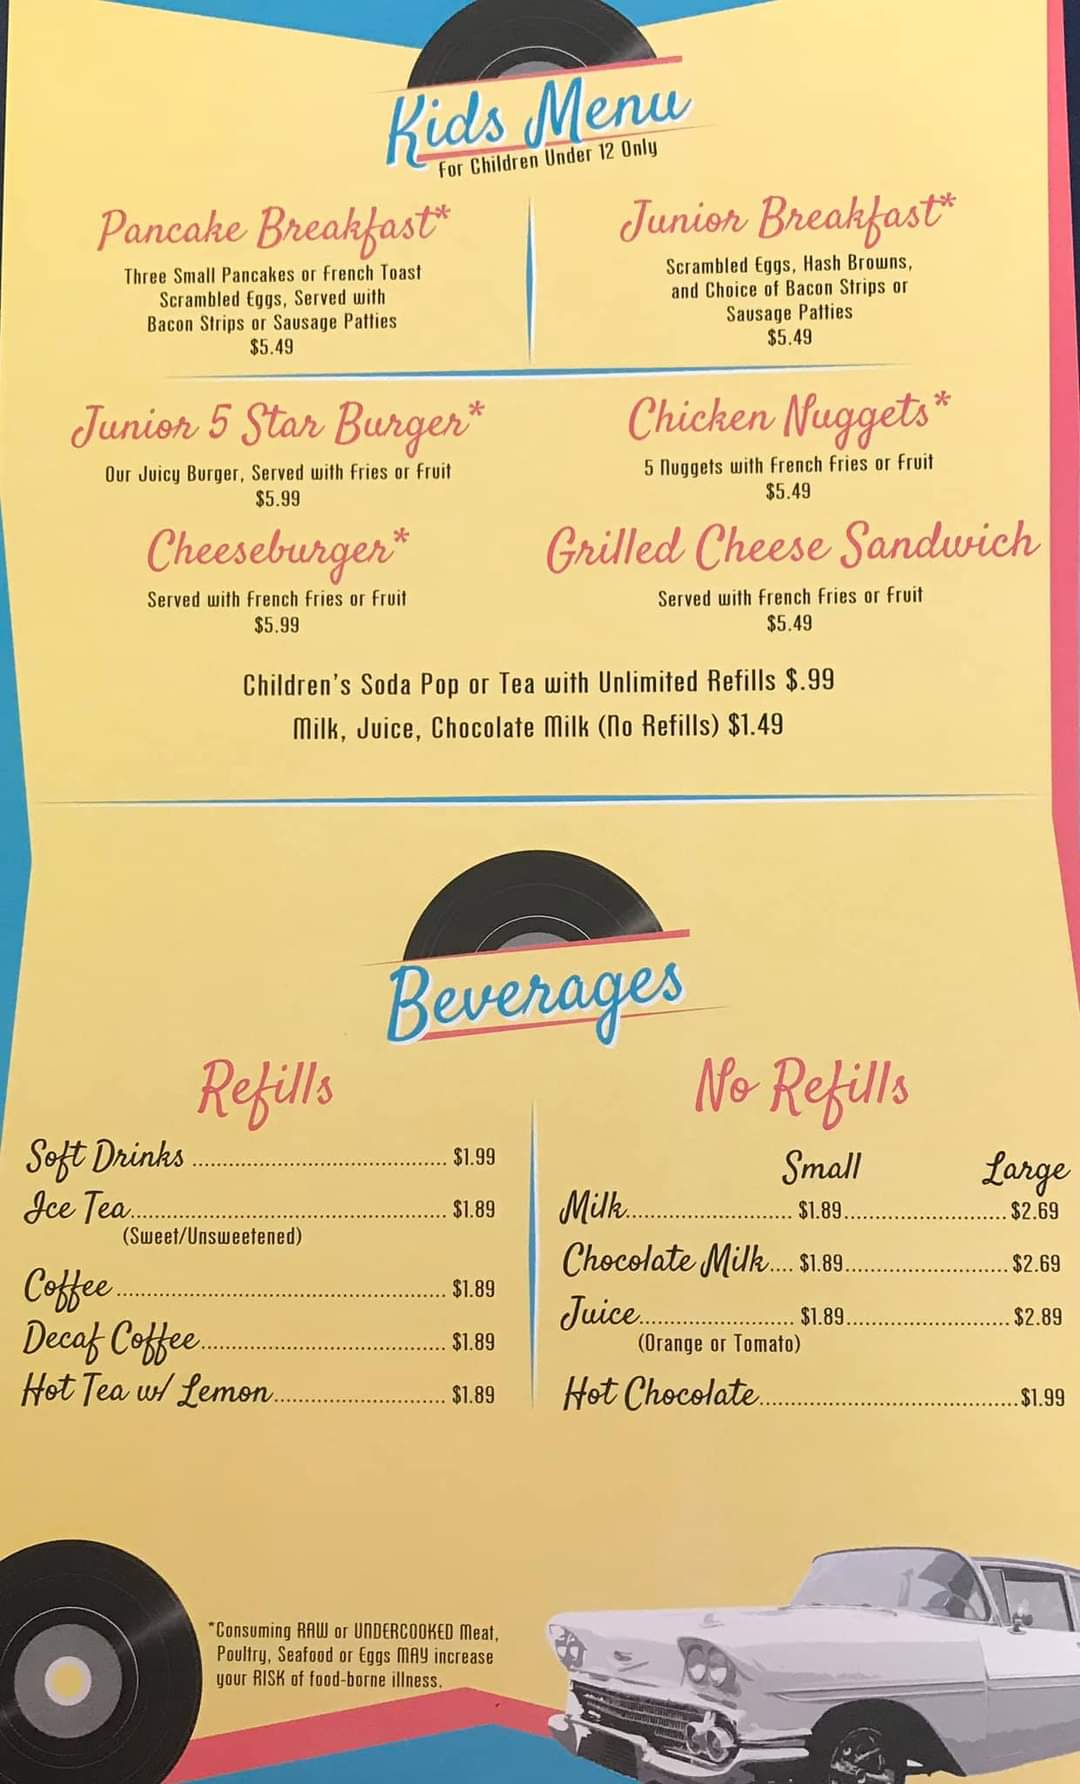 Kids Menu
For Children Under 12 Only
Pancake Breakfast*
Three Small Pancakes or French Toast
Scrambled Eggs, Served with
Bacon Strips or Sausage Patties
$5.49
Junior Breakfast*
Scrambled Eggs, Hash Browns,
and Choice of Bacon Strips or
Sausage Patties
$5.49
Junior 5 Star Burger*
Our Juicy Burger, Served with Fries or Fruit
$5.99
Chicken Nuggets*
5 Nuggets with French Fries or Fruit
$5.49
Cheeseburger*
Served with French Fries or Fruit
$5.99
Grilled Cheese Sandwich
Served with French Fries or Fruit
$5.49
Children's Soda Pop or Tea with Unlimited Refills $.99
Milk, Juice, Chocolate Milk (No Refills) $1.49
Beverages
Refills
Soft Drinks ........ $1.99
Ice Tea ........ $1.89
(Sweet/Unsweetened)
Coffee ........ $1.89
Decaf Coffee ........ $1.89
Hot Tea w/ Lemon ........ $1.89
No Refills
Small Large
Milk ........ $1.89 ........ $2.69
Chocolate Milk .... $1.89 ........ $2.69
Juice ........ $1.89 ........ $2.89
(Orange or Tomato)
Hot Chocolate ........ $1.99
*Consuming RAW or UNDERCOOKED Meat,
Poultry, Seafood or Eggs MAY increase
your RISK of food-borne illness.